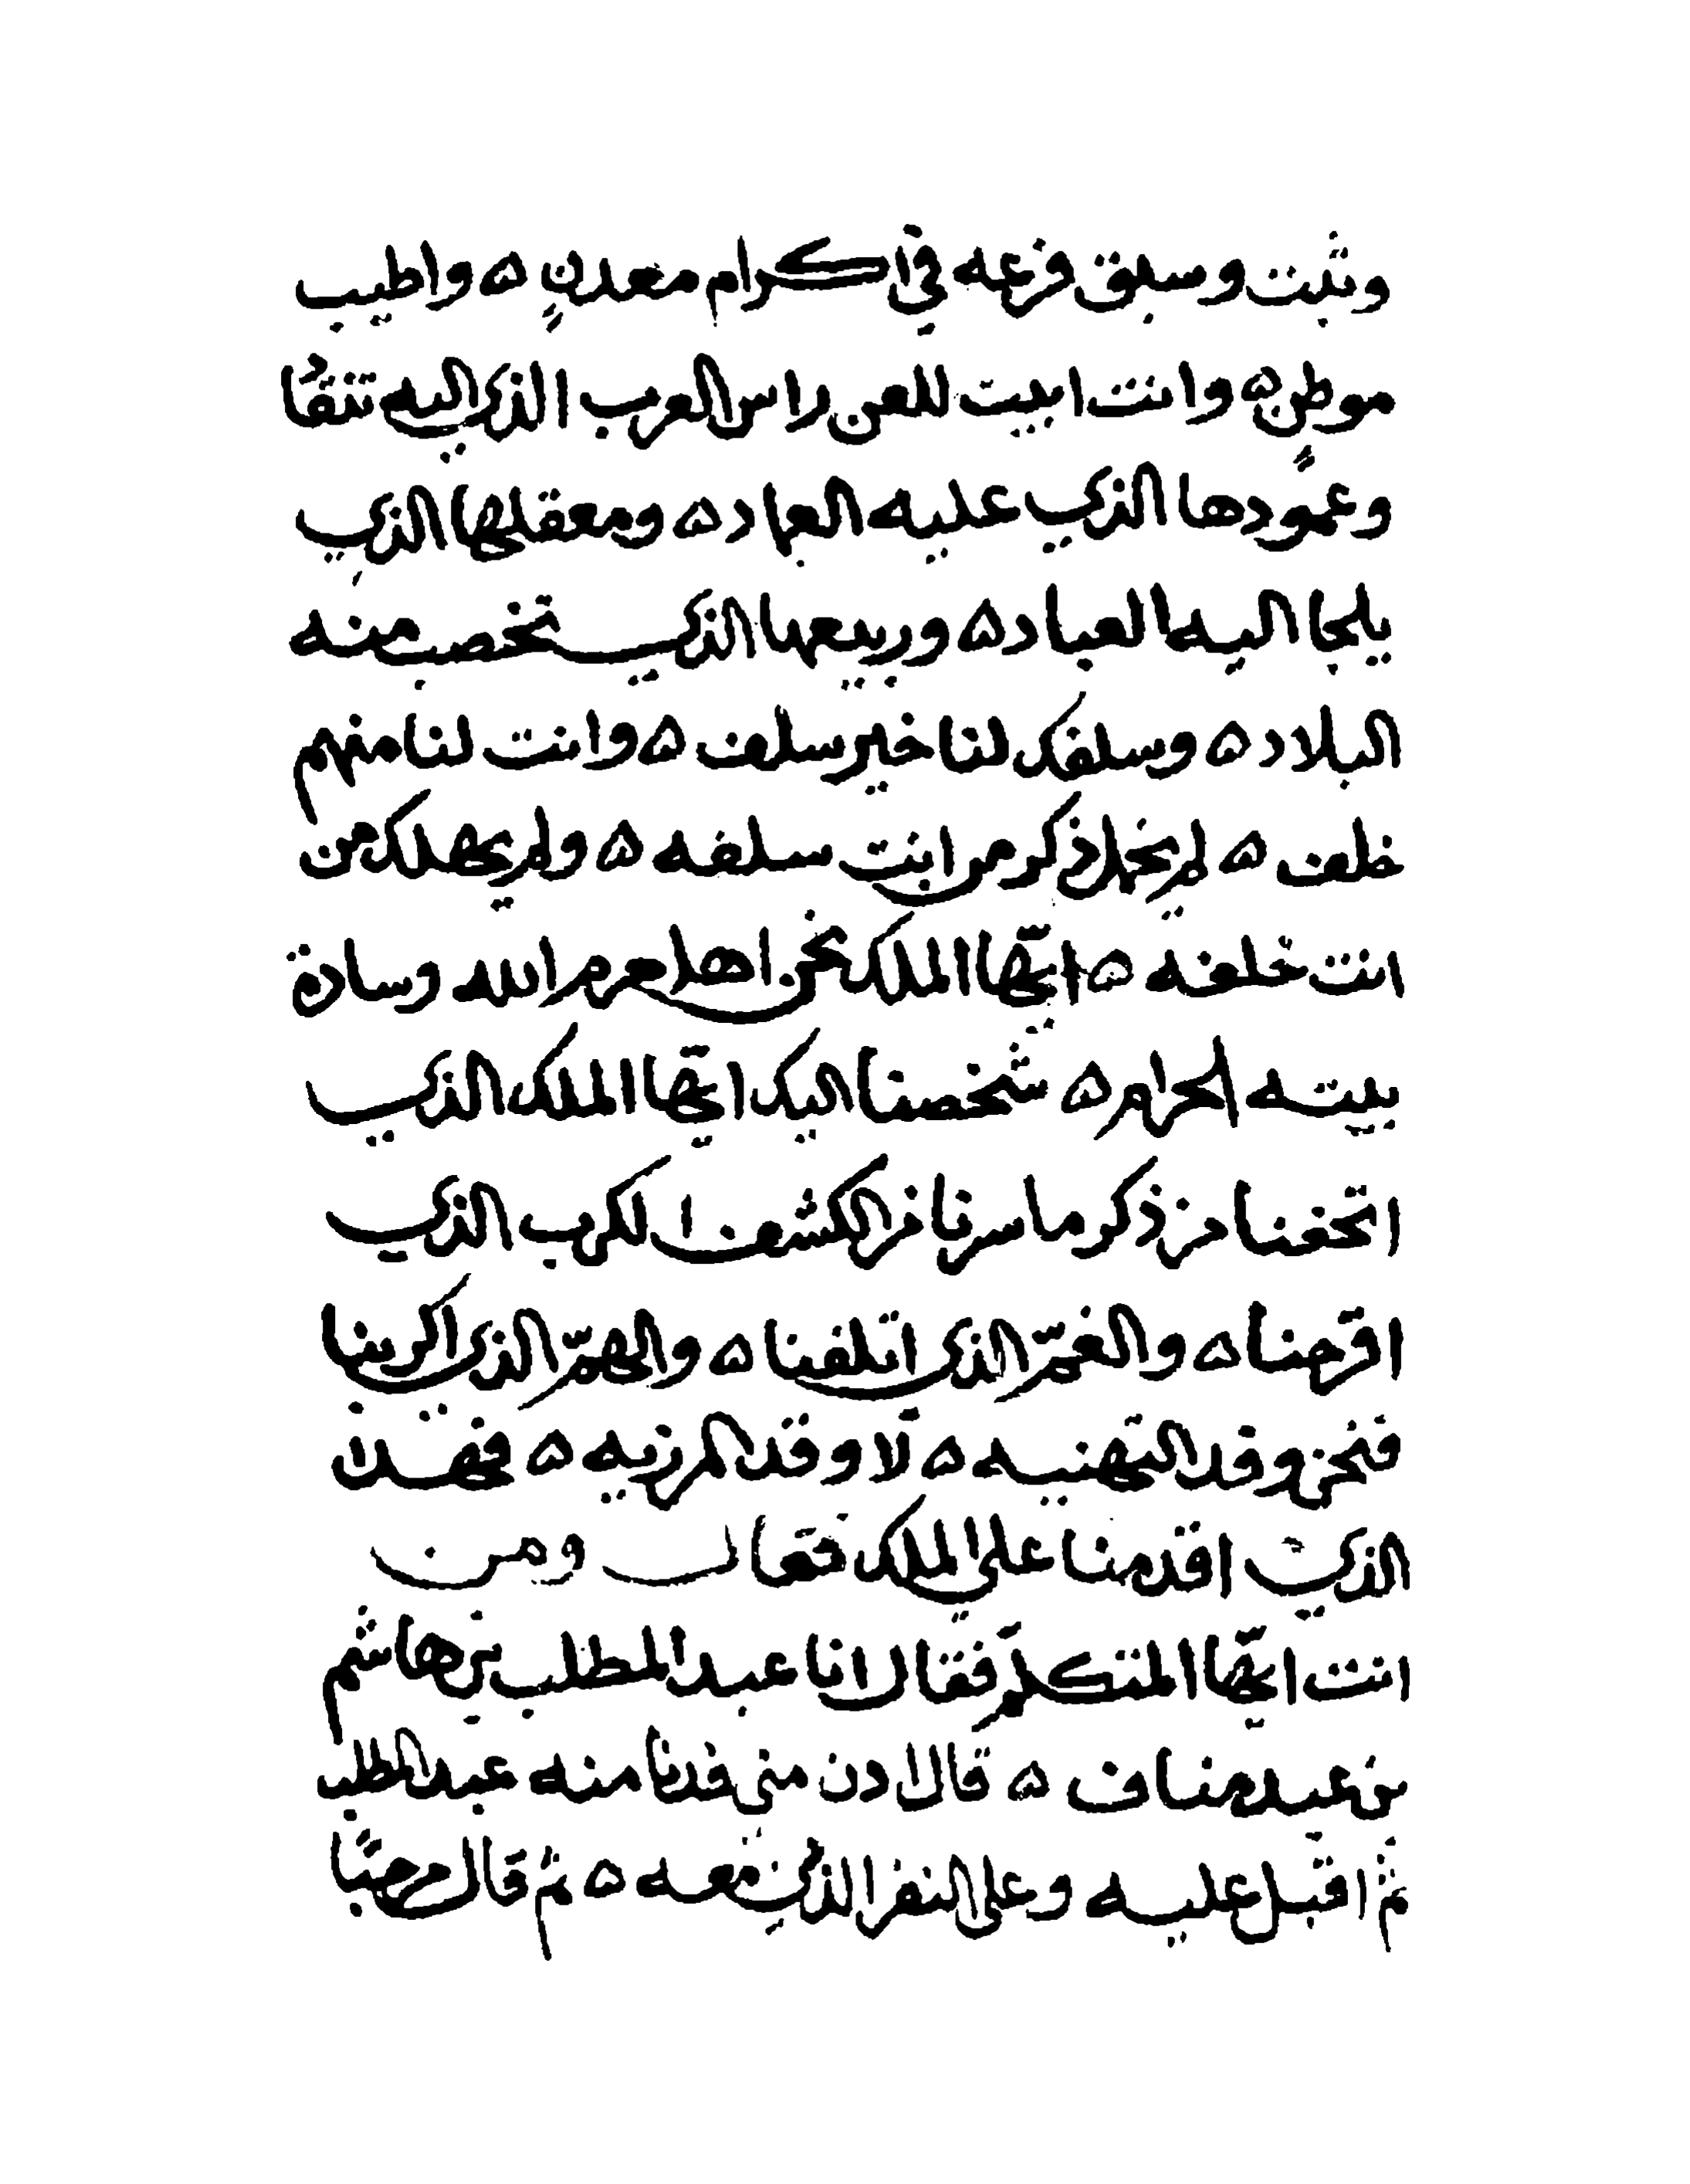 وثبت وسبق فرعه في اكرام معدنٍ ه واطيب
موطنٍ ه وانت ابيت للعن راس العرب الذي اليه تنقا
وعمودها الذي عليه العماد ه ومعقلها الذي
يلجا اليه العباد ه وربيعها الذي تخصب منه
البلاد ه وسلفك لنا خير سلف ه وانت لنا منهم
خلف ه لم يخمل ذكر من انت سلفه ه ولم يهلك من
انت خلفه ه ايّها الملك نحن اهل حرم الله وسادة
بيته الحرام ه شخصنا اليك ايّها الملك الذي
اتحفنا من ذكر ما سرنا من الكشف الكرب الذي
اقرحنا ه والغمّ الذي اتلفنا ه والهمّ الذي اكربنا
فنحن وفد التهنيه ه لا وفد المرزيه ه فهذا
الذي اقدمنا على الملك فقال ومن
انت ايّها المتكلم فقال انا عبد المطلب بن هاشم
بن عبد مناف ه قال ادن مني فدنا منه عبد المطلب
ثم اقبل عليه وعلى النفر الذي معه ه ثم قال مرحبًا